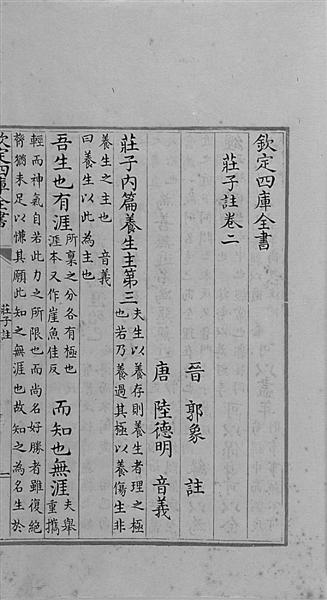 欽定四庫全書
莊子註卷二
晉 郭象 註
唐 陸德明 音義
莊子內篇養生主第三
夫生以養存則養生者理之極
也若乃養過其極以養傷生非
養生之主也 音義
曰養生以此為主也
吾生也有涯
所稟之分各有極也
涯本又作崖魚佳反
而知也無涯
夫舉
重攜
輕而神氣自若此力之所限也而尚名好勝者雖復絕
膂猶未足以慊其願此知之無涯也故知之為名生於
欽定四庫全書
莊子註